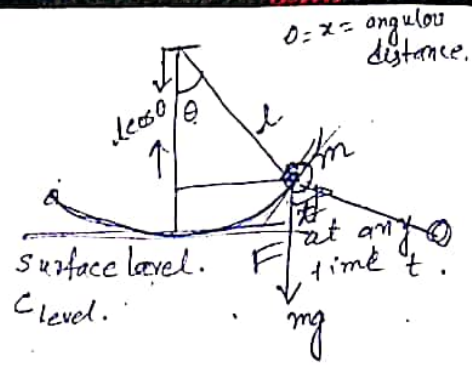 θ = x = angulou
distance.
lcosθ
θ
l
m
at any
time t.
F
mg
Surface lavel.
C level.